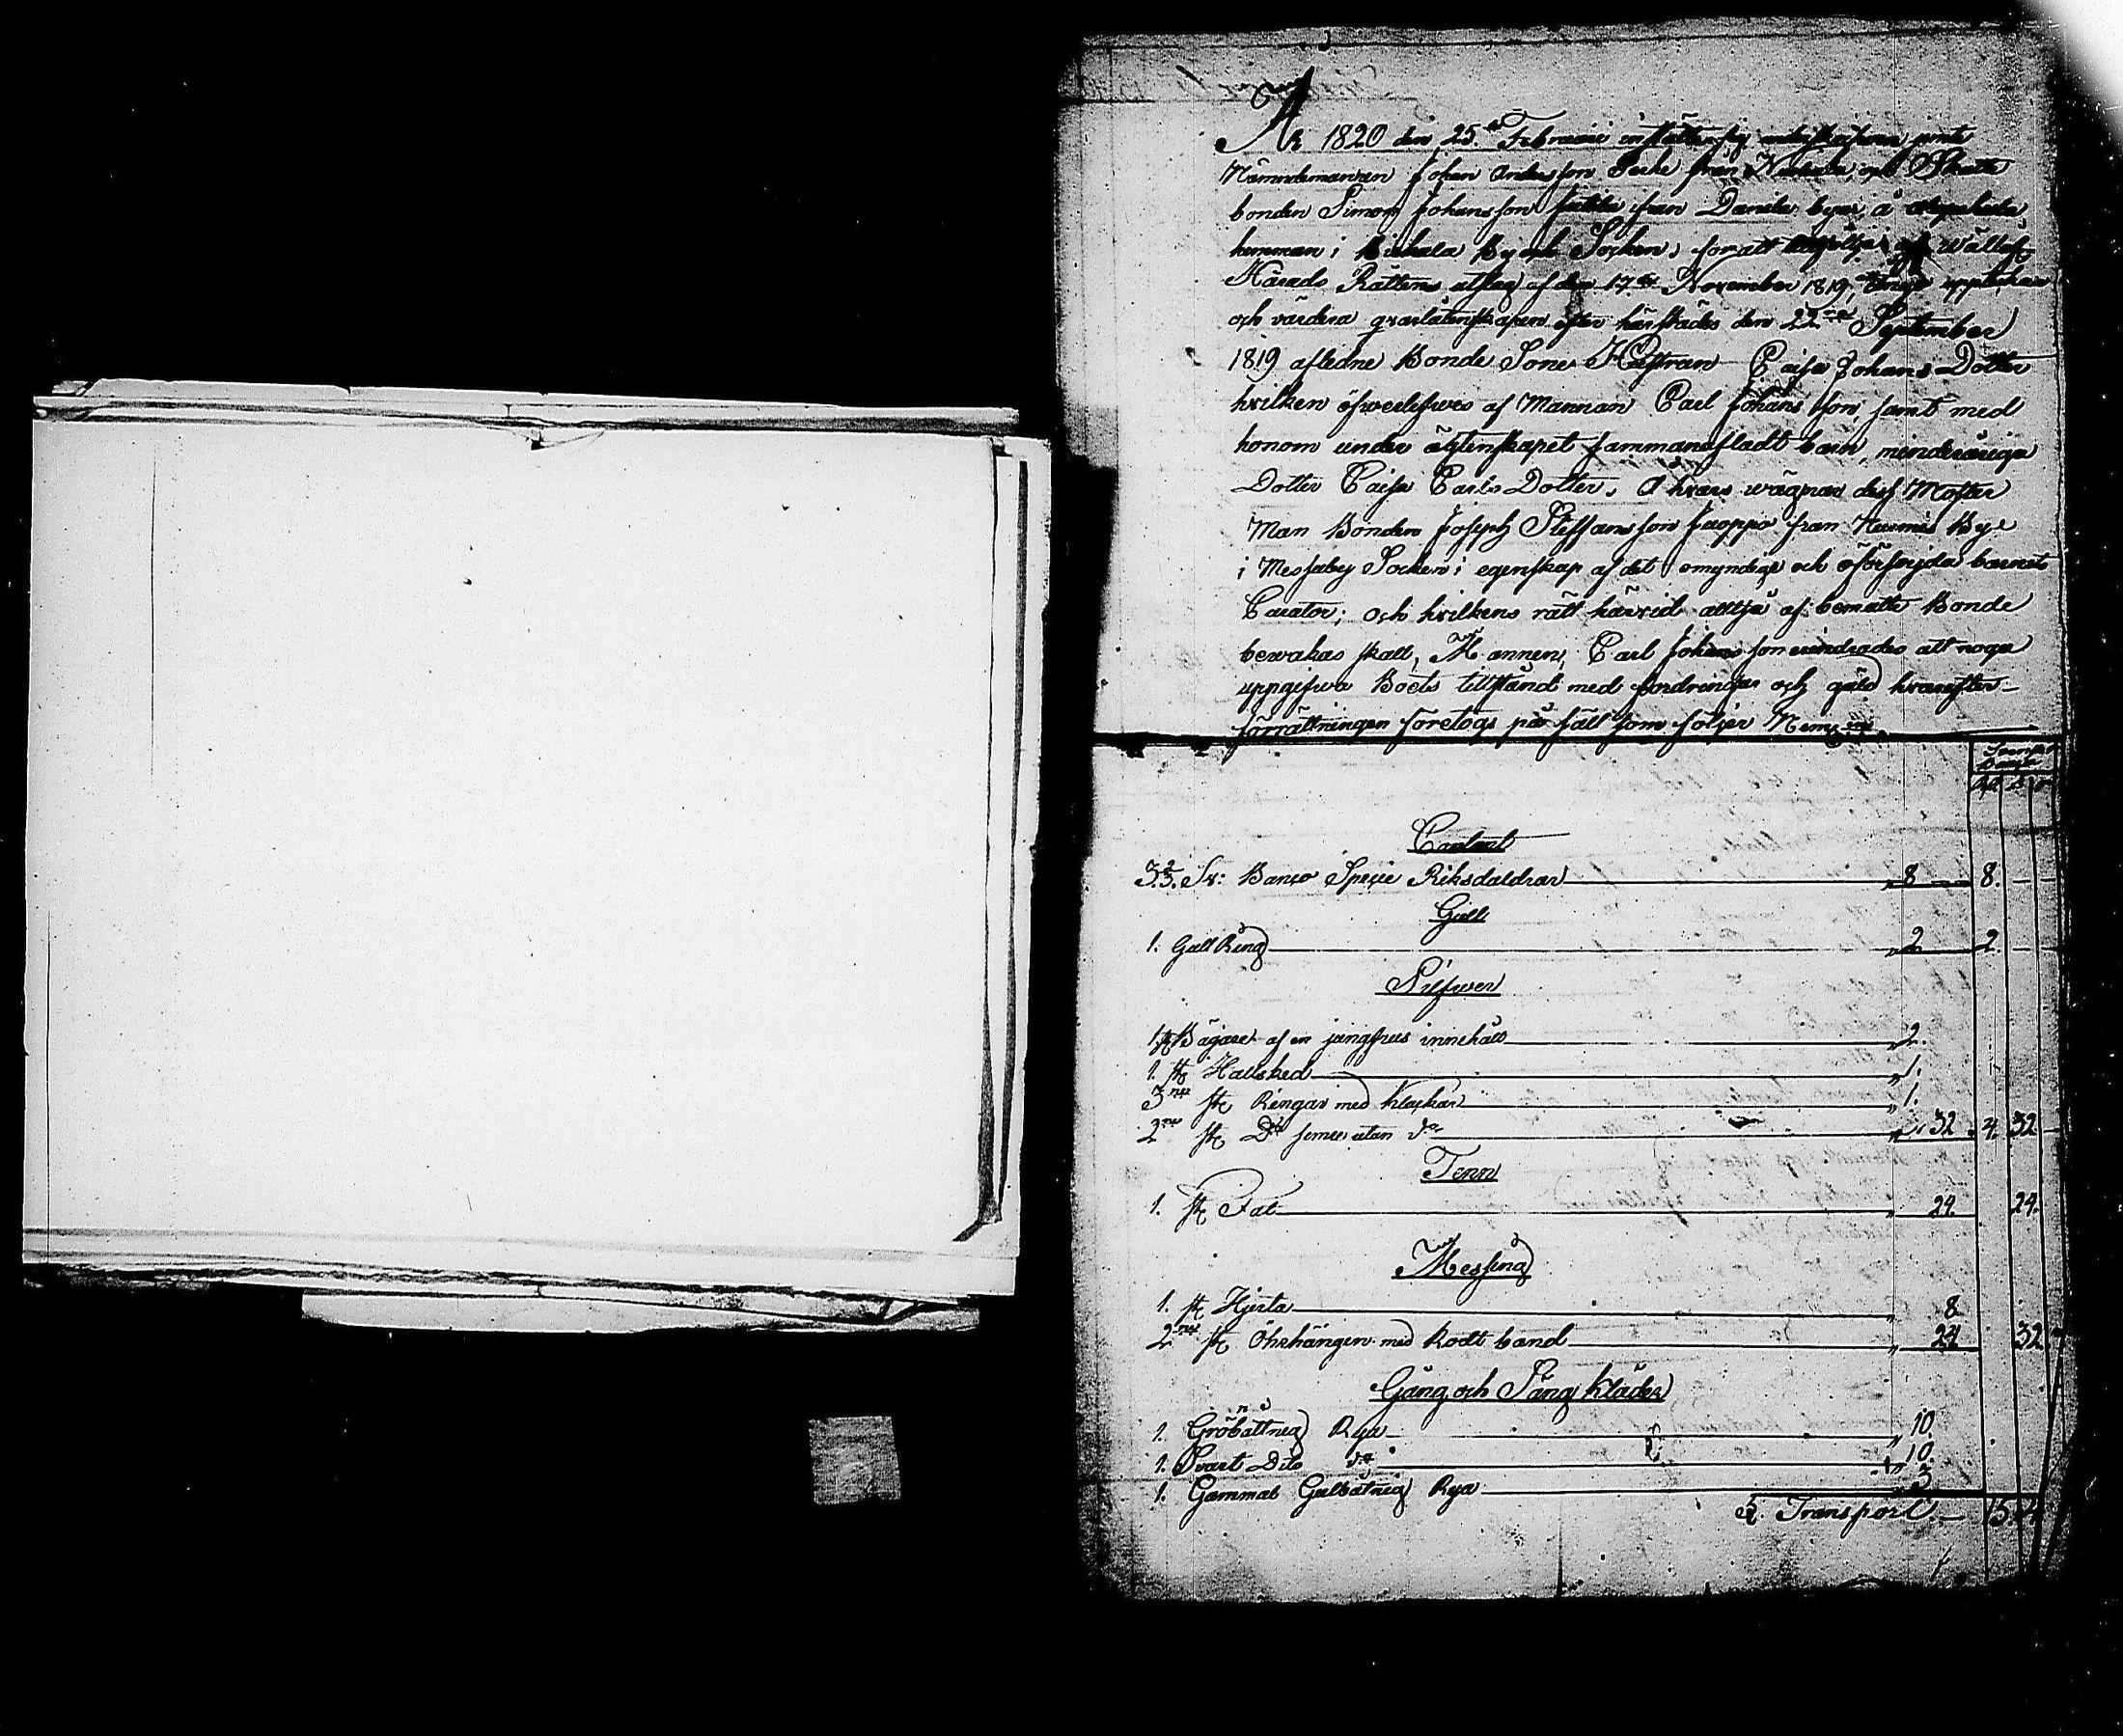 År 1820 den 25te Februarii inställte sig undertecknad jemte
Nämndemannen Johan Andersson från och Skatte
bonden Simon Johansson från Danila byn, å
hemman i Birkala By och Socken, för att wällofl
Härads Rättens utslag af den 17de November 1819, upptekna
och värdera qvarlåtenskapen efter härstädes den 22dra September
1819 afledne Bonde Sone Hustrun Caisa Johans Dotter
hvilken öfwerlefwes af Mannan Carl Johans son, samt med
honom under ägtenskapet sammanafladt barn, minderåriga
Dotter Caisa Carls Dotter. A hvars wägnar dess Moster
Man Bonden Joseph Steffansson från By
i Messuby Socken i egenskap af det omyndiga och oförsörjda barnets
Curator; och hvilkens rätt härvid alltså af bemälte Bonde
bewakas skall, Mannen, Carl Johans son erindrades att noga
uppgifwa Boets tillstånd med fordringar och gäld hvarefter
förrättningen företogs på sätt som följer Nemgn
Contant
3 2/3. Sv: Banco Specie Riksdaldrar „ 8 8.
Gull
1. Gull Ring „ 2 2.
Silfwer
1 st Bägare af en jungfrus innehåll „ 2.
1. st Hallsked „ 1.
3ne st Ringar med Klackar „ 1.
2ne st Dito semre utan do „ 32 4. 32
Tenn
1. st Fat „ 24. 24.
Messing
1. st Hjerta „ 8
2ne st Öhrhängen med Rodt band „ 24 32
Gång och Säng Kläder
1. Grönbåttnig Rya „ 10.
1. Svart Dito do „ 10.
1. Gammal Gulbåtnig Rya „ 3
Transport 15